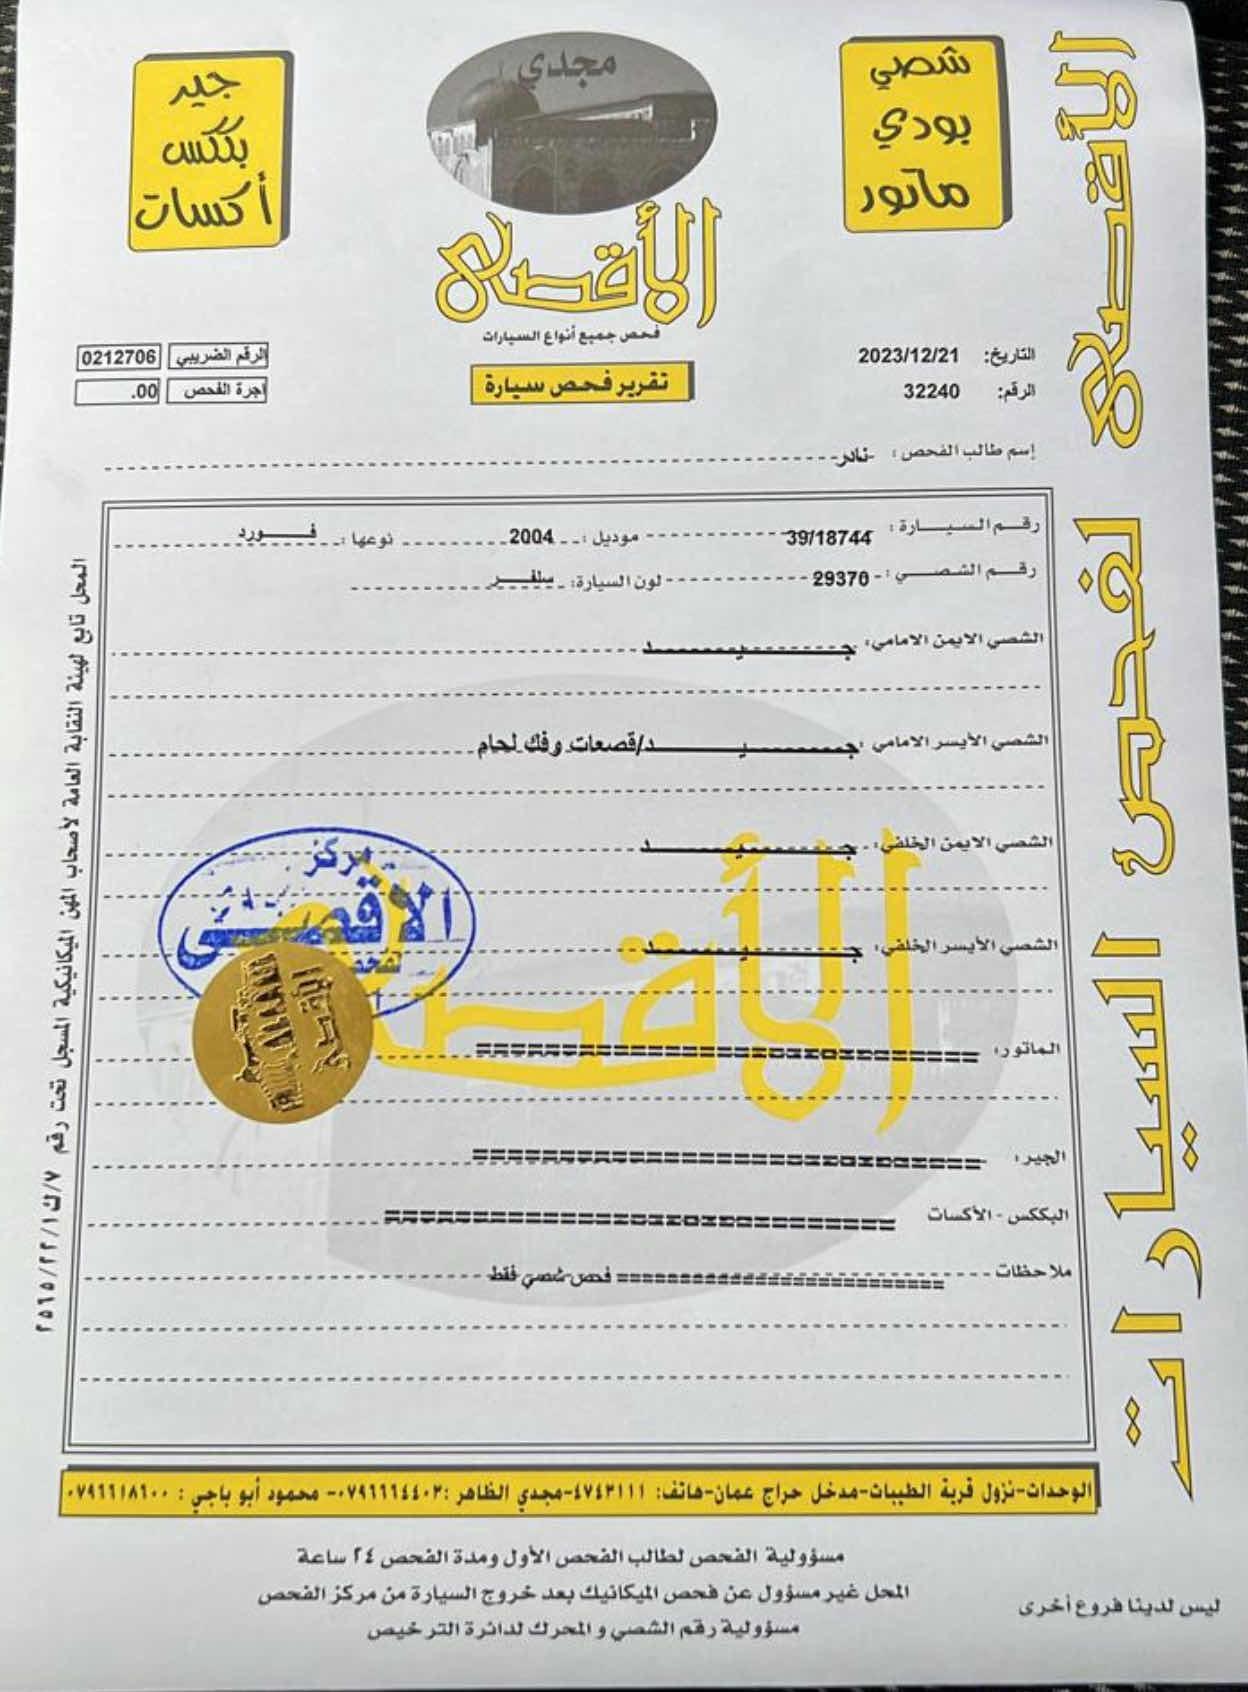 شصي
بودي
ماتور
مجدي
جير
بككس
أكسات
الأقصى
فحص جميع أنواع السيارات
تقرير فحص سيارة
التاريخ: 2023/12/21
الرقم: 32240
الرقم الضريبي 0212706
اجرة الفحص 00.
إسم طالب الفحص: نادر
رقم السيارة: 39/18744 موديل: 2004 نوعها: فورد
رقم الشصي: 29370 لون السيارة: سلفر
الشصي الايمن الامامي: جيد
الشصي الأيسر الامامي: جيد/قصعات وفك لحام
الشصي الايمن الخلفي: جيد
الشصي الأيسر الخلفي: جيد
مركز
الأقصى
لفحص
الأقصى
الماتور:
الجير:
البككس - الأكسات
ملاحظات فحص شصي فقط
الأقصى لفحص السيارات
المحل تابع لهيئة النقابة العامة لأصحاب المهن الميكانيكية المسجل تحت رقم ٧/ك١/٢٢/٢٥٦٥
الوحدات-نزول قرية الطيبات-مدخل حراج عمان-هاتف: ٤٧٤٣١١١-مجدي الظاهر :٠٧٩٦٦٦٤٤٠٢- محمود أبو باجي : ٠٧٩٦٦١٨٦٠٠
مسؤولية الفحص لطالب الفحص الأول ومدة الفحص ٢٤ ساعة
المحل غير مسؤول عن فحص الميكانيك بعد خروج السيارة من مركز الفحص
مسؤولية رقم الشصي و المحرك لدائرة الترخيص
ليس لدينا فروع أخرى